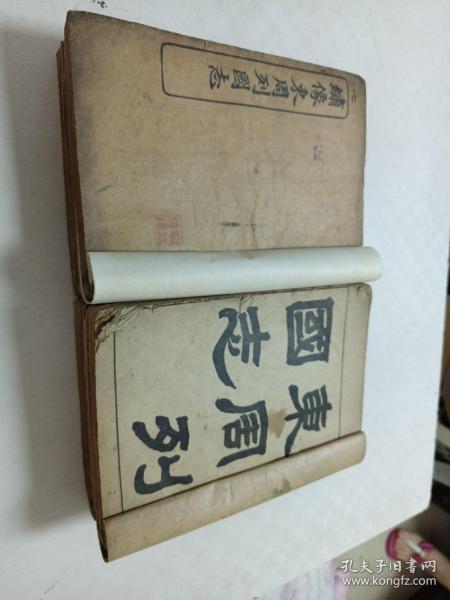 繡像東周列國志
東周列
國志
孔夫子旧书网
www.kongfz.com